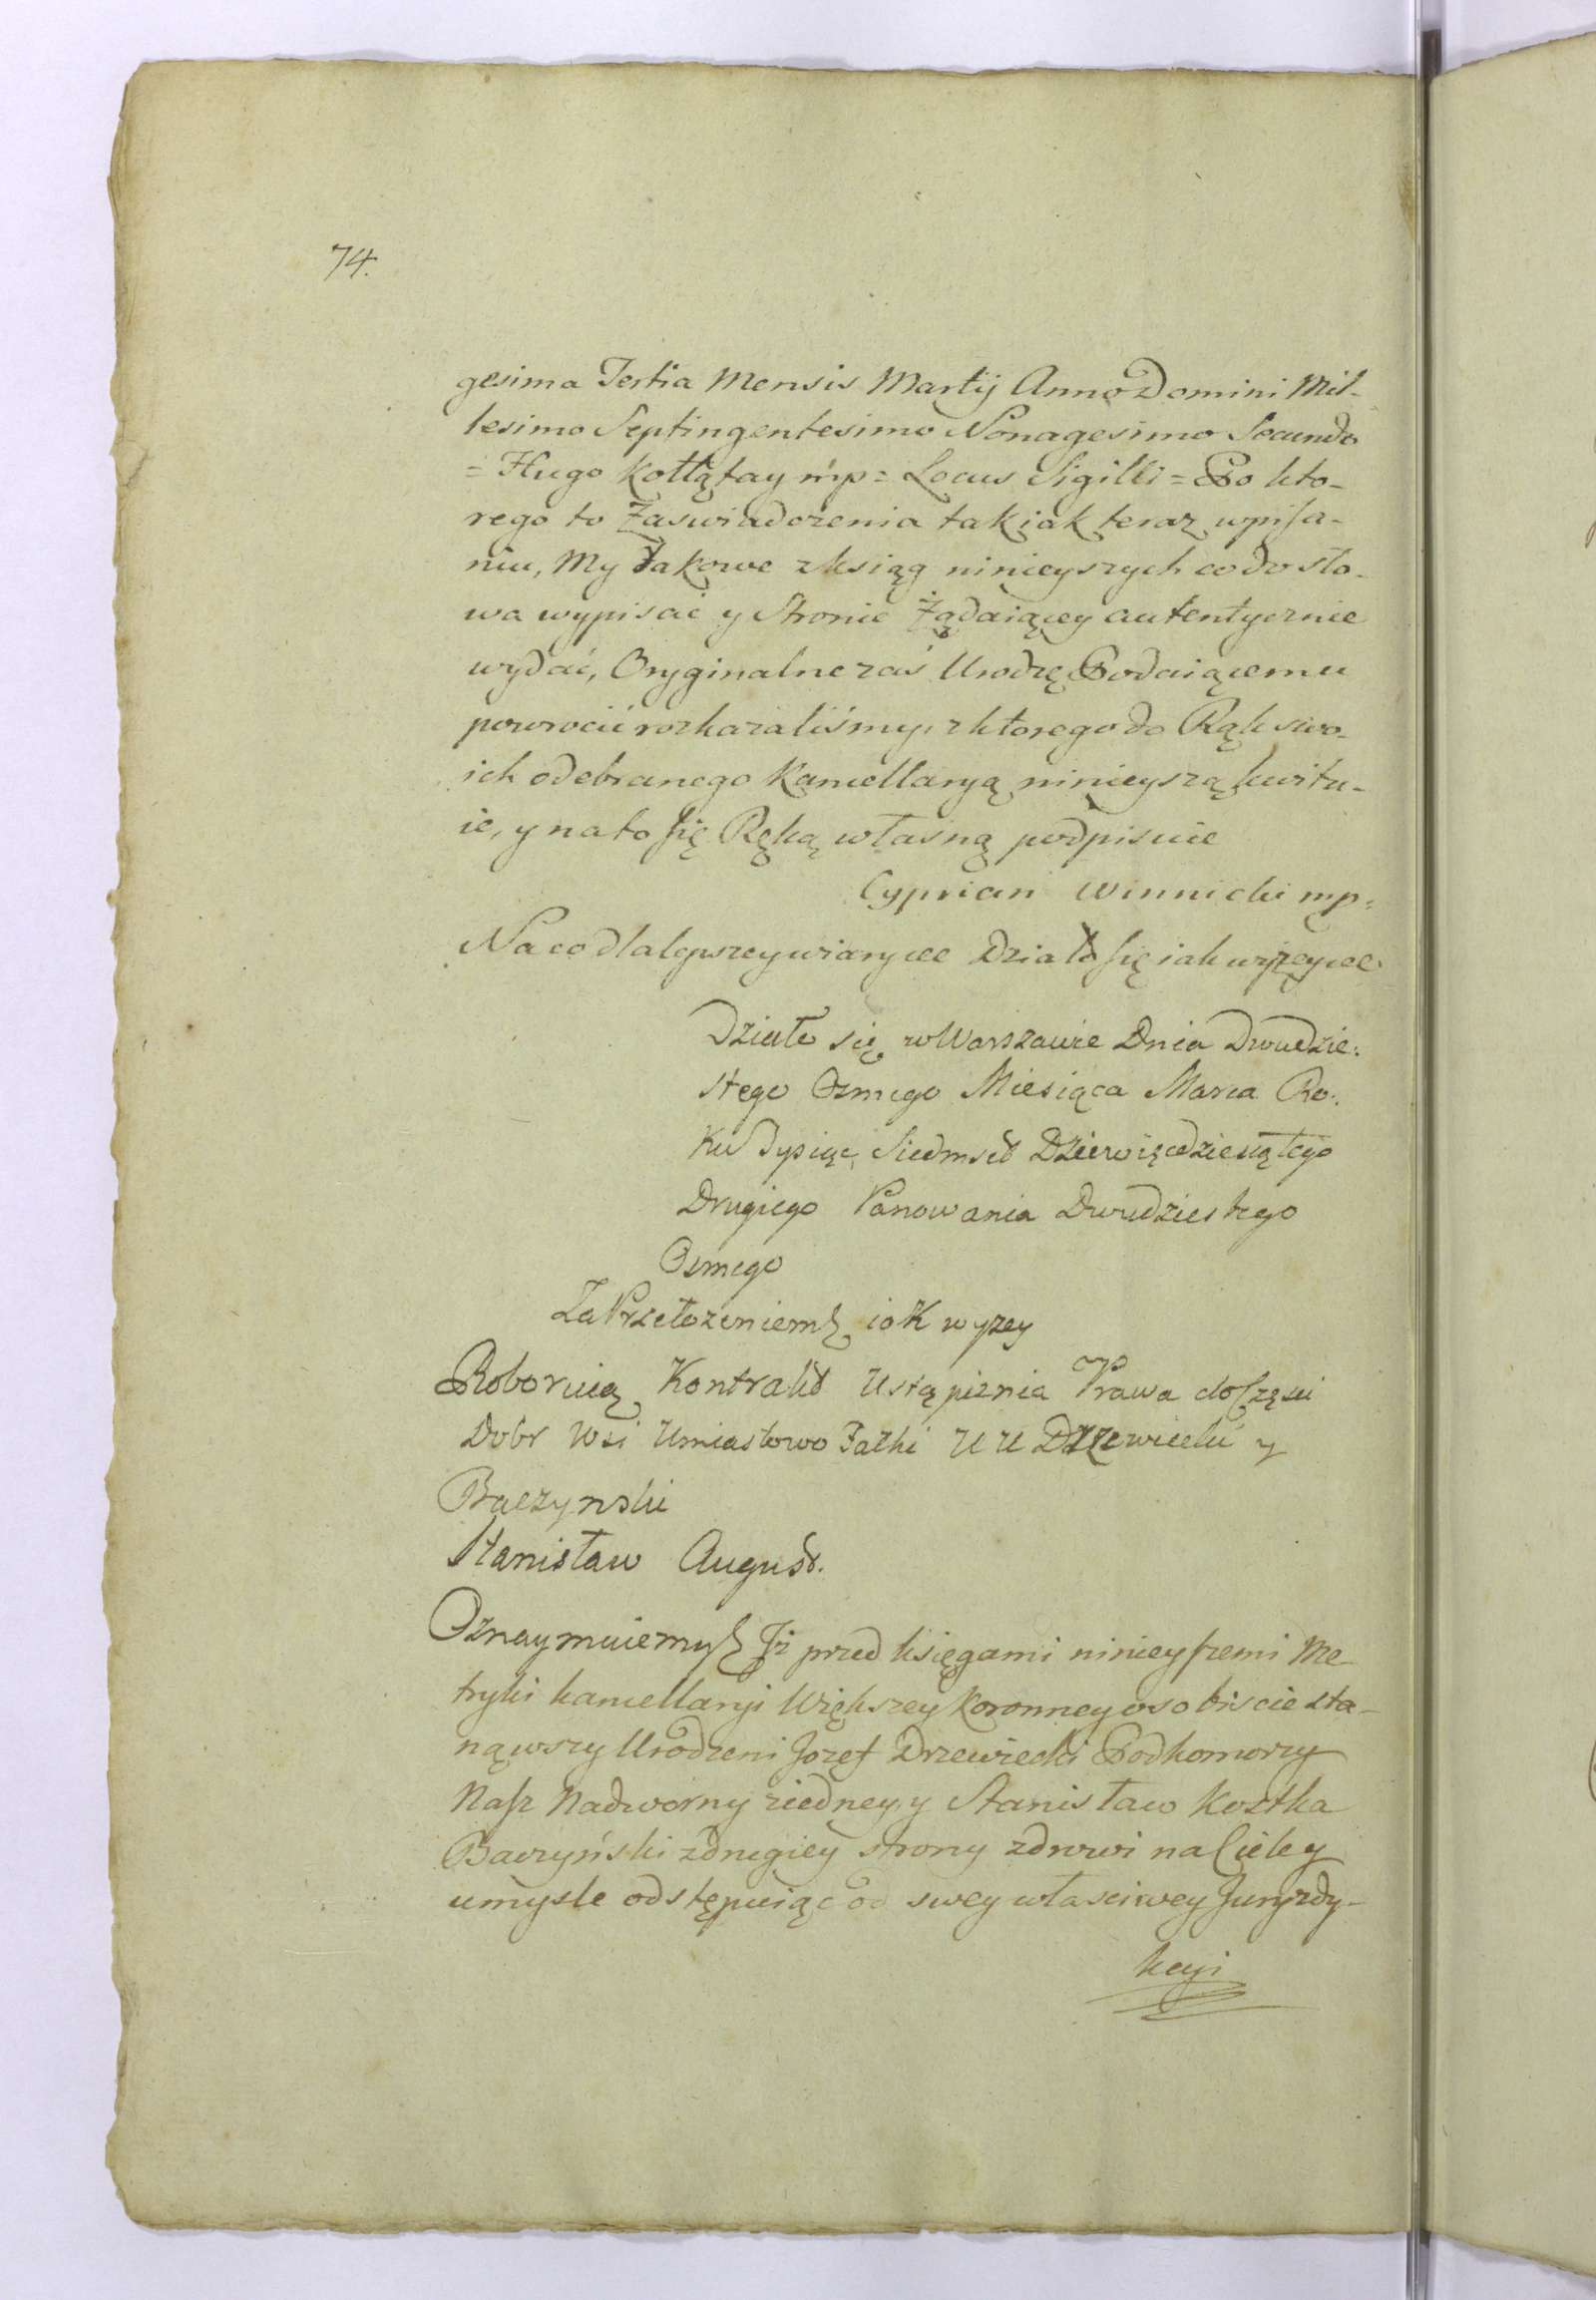 74.
gesima Tertia Mensis Martij Anno Domini Mil-
lesimo Septingentesimo Nonagesimo Secundo
= Hugo Kołłątay mp = Locus Sigilli = Po kto-
rego to Zaswiadczenia tak iak teraz wpisa-
niu, My takowe z ksiąg ninieyszych co do sło-
wa wypisać y Stronie Żądaiącey autentycznie
wydać, Oryginalne zaś Urodzę Podaiącemu
powrocić rozkazaliśmy, z ktorego do Rąk swo-
ich odebranego Kancellaryą ninieyszą kwitu-
ie, y na to się Ręką własną podpisuie
Cyprian Winnicki mp.
Na co dla lepszey wiary etc Działo się iak wyżey etc
Działo się w Warszawie Dnia Dwudzie:
stego Osmego Miesiąca Marca Ro:
Ku Tysiąc Siedmset Dziewięćdziesiątego
Drugiego Panowania Dwudziestego
Osmego
Za Przełożeniem iak wyzey
Roboruią Kontrakt Ustąpienia Prawa do Części
Dobr Wsi Umiastowo Fałki U U Drzewiecki y
Baczynski
Stanisław August.
Oznaymuiemy Iż przed księgami ninieyszemi Me-
tryki kancellaryi Większey Koronney osobiscie sta-
nąwszy Urodzeni Jozef Drzewiecki Podkomorzy
Nasz Nadworny z iedney, y Stanisław Kostka
Baczyński z drugiey strony zdrowi na Ciele y
umysle odstępuiąc od swey własciwey Juryzdy-
kcyi